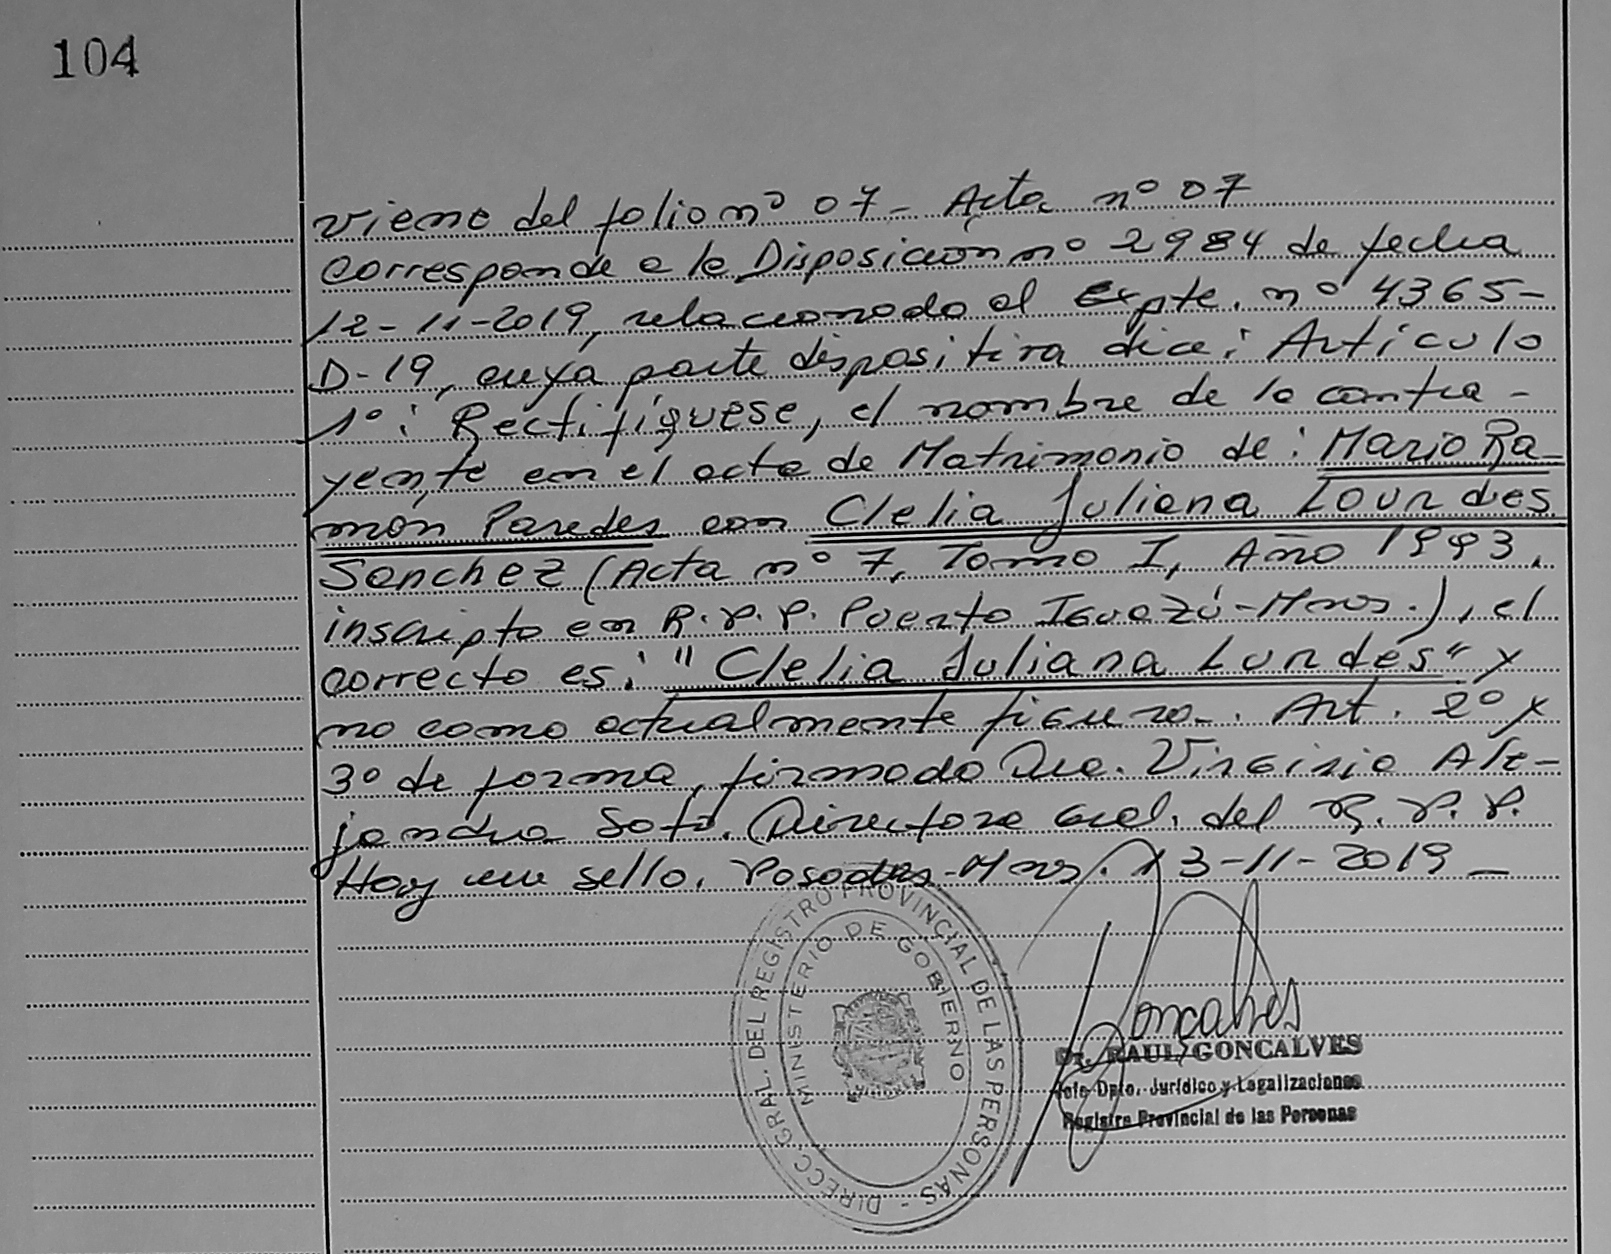 104
Viene del folio nº 07 - Acta nº 07
corresponde a la Disposición nº 2984 de fecha
12-11-2019, relacionado al Expte. nº 4365-
D-19, cuya parte dispositiva dice: Artículo
1º: Rectifíquese, el nombre de la contra-
yente en el acta de Matrimonio de: Mario Ra-
món Paredes con Clelia Juliana Lourdes
Sanchez (Acta nº 7, Tomo I, Año 1993,
inscripto en R.P.P. Puerto Iguazú-Mnes.), el
correcto es: "Clelia Juliana Lurdes" y
no como actualmente figura.. Art. 2º y
3º de forma, firmado Dra. Virginia Ale-
jandra Soto. Directora Gral. del R.P.P.
Hay un sello. Posadas-Mnes. 13-11-2019 -
DIRECC. GRAL. DEL REGISTRO PROVINCIAL DE LAS PERSONAS -
MINISTERIO DE GOBIERNO
Goncalves
Dr. RAUL GONCALVES
Jefe Dpto. Jurídico y Legalizaciones
Registro Provincial de las Personas